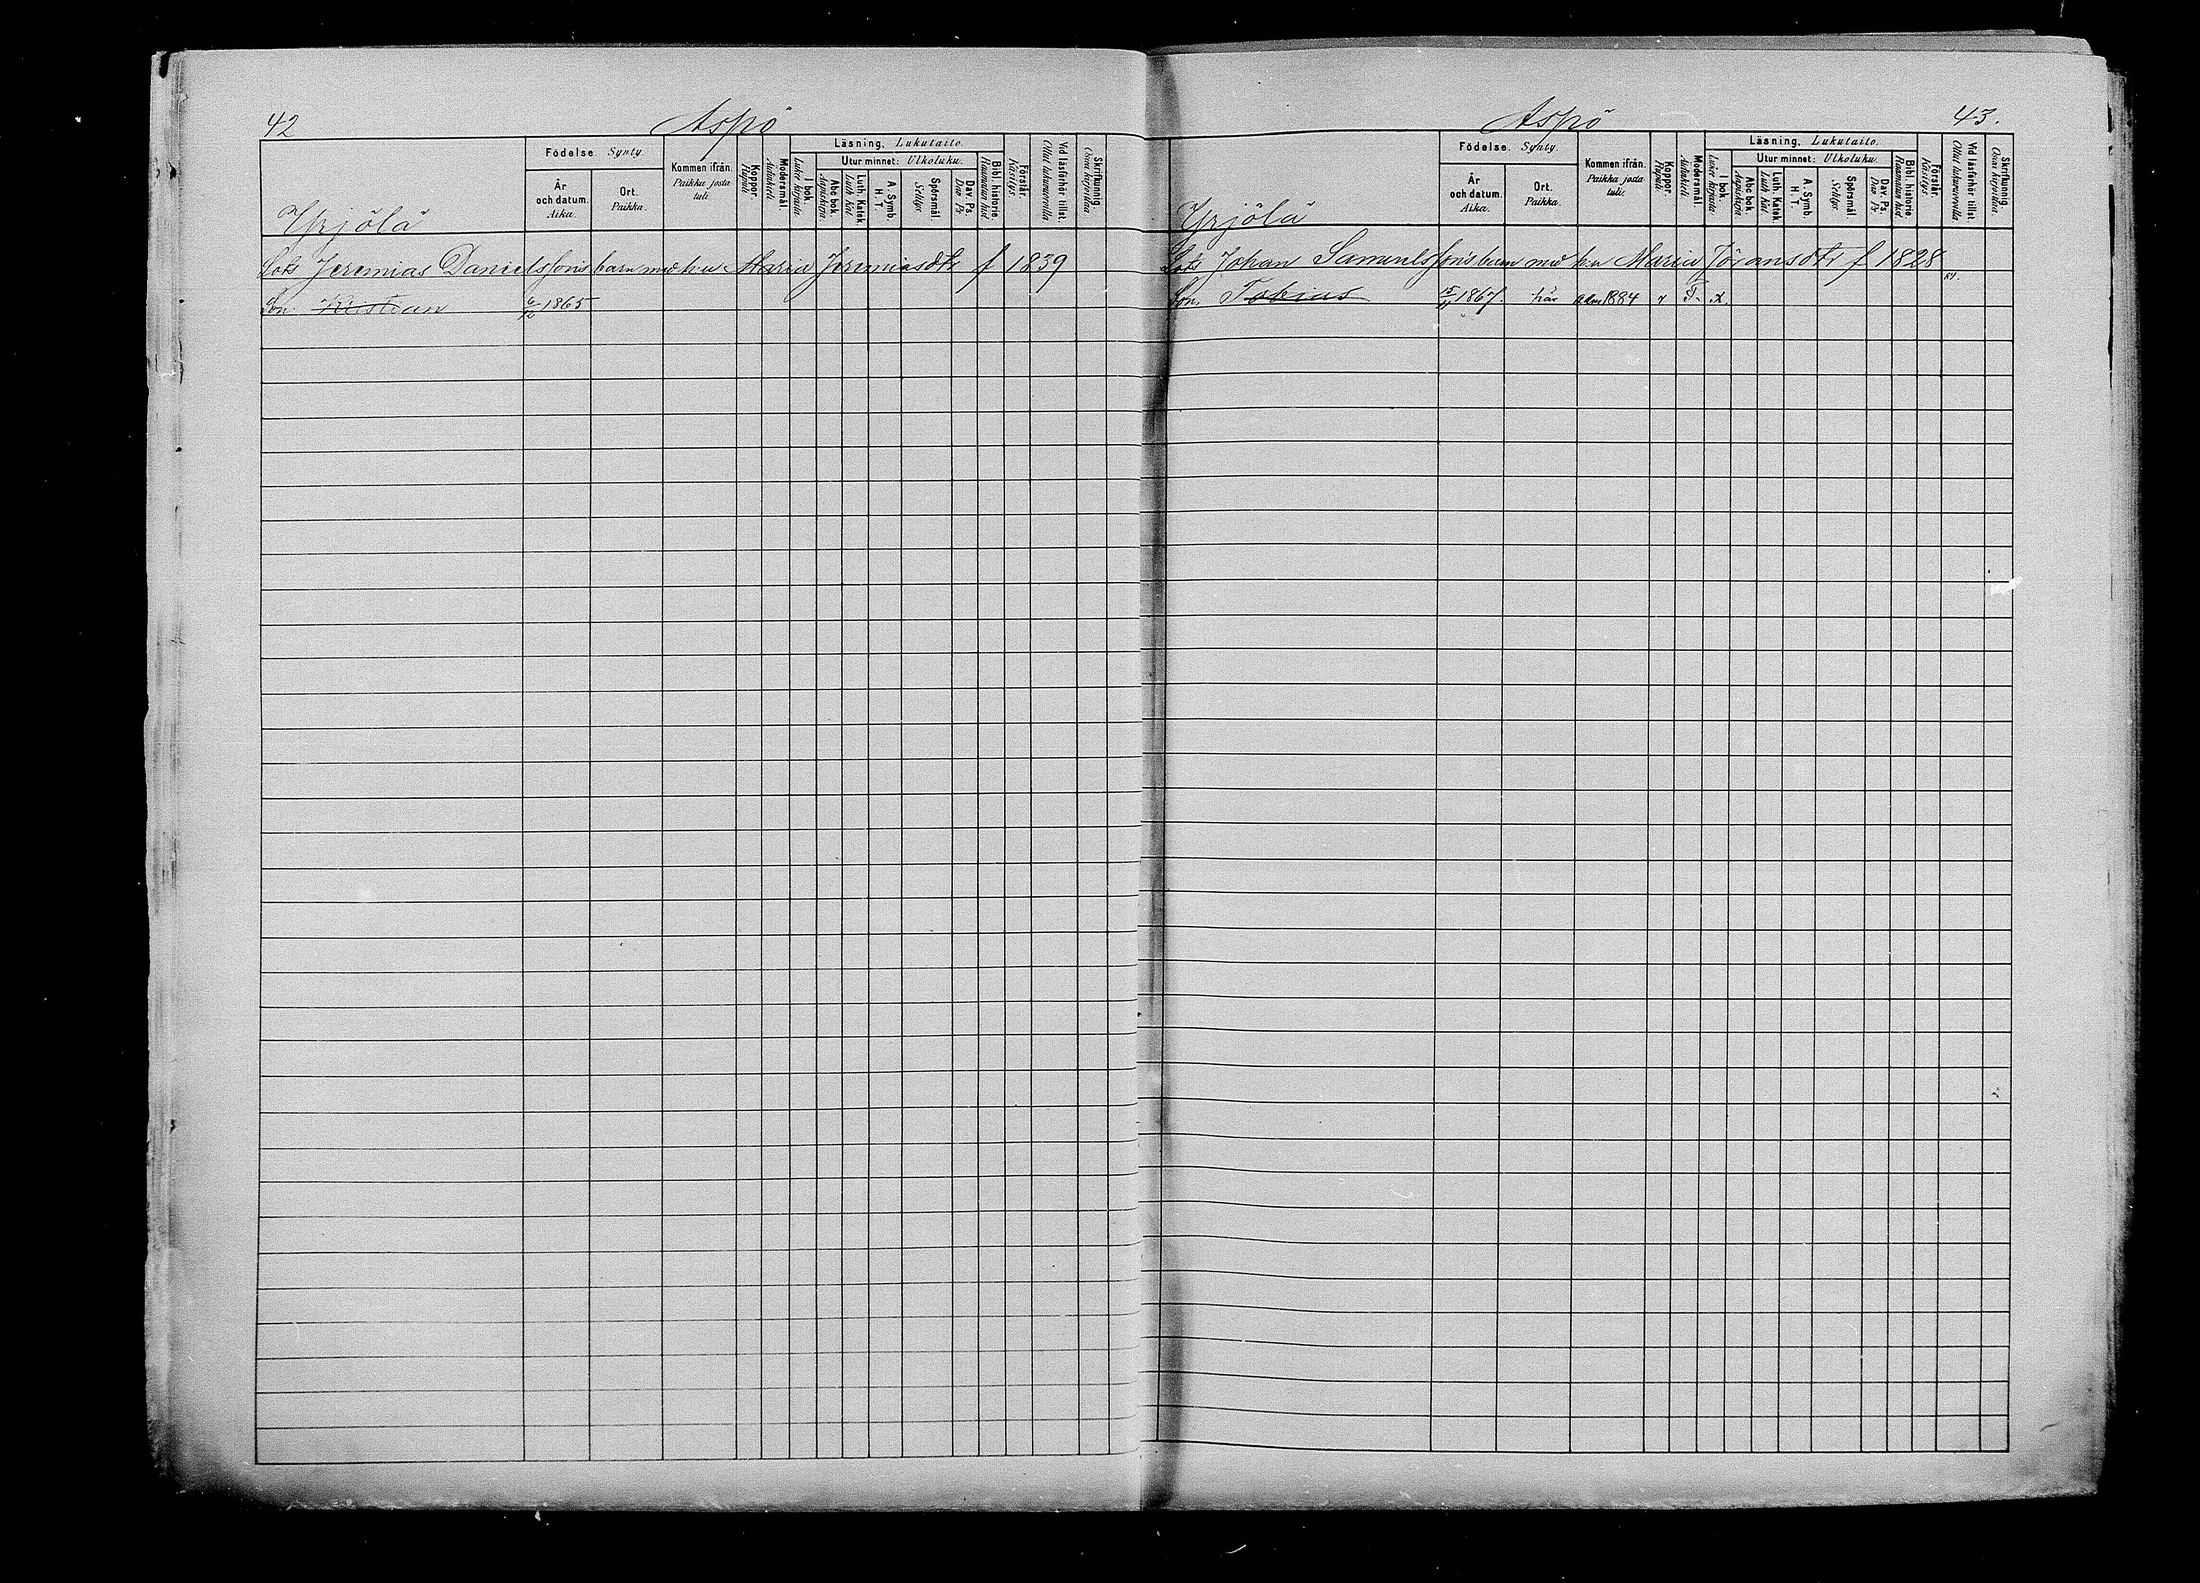 42
Aspö
Födelse. Synty.
Kommen ifrån.
Paikka josta tuli.
Koppor.
Rupuli.
Modersmål.
Äidinkieli.
Läsning. Lukutaito.
I bok.
Lukee kirjasta.
Utur minnet: Ulkoluku.
Abc bok.
Aapiskirja
Luth. Katek.
Luth Kat
A. Symb.
H. T.
Spörsmål.
Selitys
Dav. Ps.
Dav Ps
Bibl. historie
Raamatun hist
Förstår.
Käsitys.
Vid läsförhör tillst.
Ollut lukuvuorolla.
Skrifkunnig.
Osaa kirjoittaa
År och datum.
Aika.
Ort.
Paikka.
Yrjölä
Lots Jeremias Danielssons barn med h:u Maria Jeremiasdtr f 1839
Son. Kristian 6/12 1865
Aspö
43.
Födelse. Synty.
Kommen ifrån.
Paikka josta tuli.
Koppor.
Rupuli.
Modersmål.
Äidinkieli.
Läsning. Lukutaito.
I bok.
Lukee kirjasta.
Utur minnet: Ulkoluku.
Abc bok.
Aapiskirja
Luth. Katek.
Luth Kat
A. Symb.
H. T.
Spörsmål.
Selitys
Dav. Ps.
Dav Ps
Bibl. historie
Raamatun hist
Förstår.
Käsitys.
Vid läsförhör tillst.
Ollut lukuvuorolla.
Skrifkunnig.
Osaa kirjoittaa
År och datum.
Aika.
Ort.
Paikka.
Yrjölä
Lots Johan Samuelssons barn med h:u Maria Jöransdtr f 1828
Son. Tobias 1867. här adm 1884